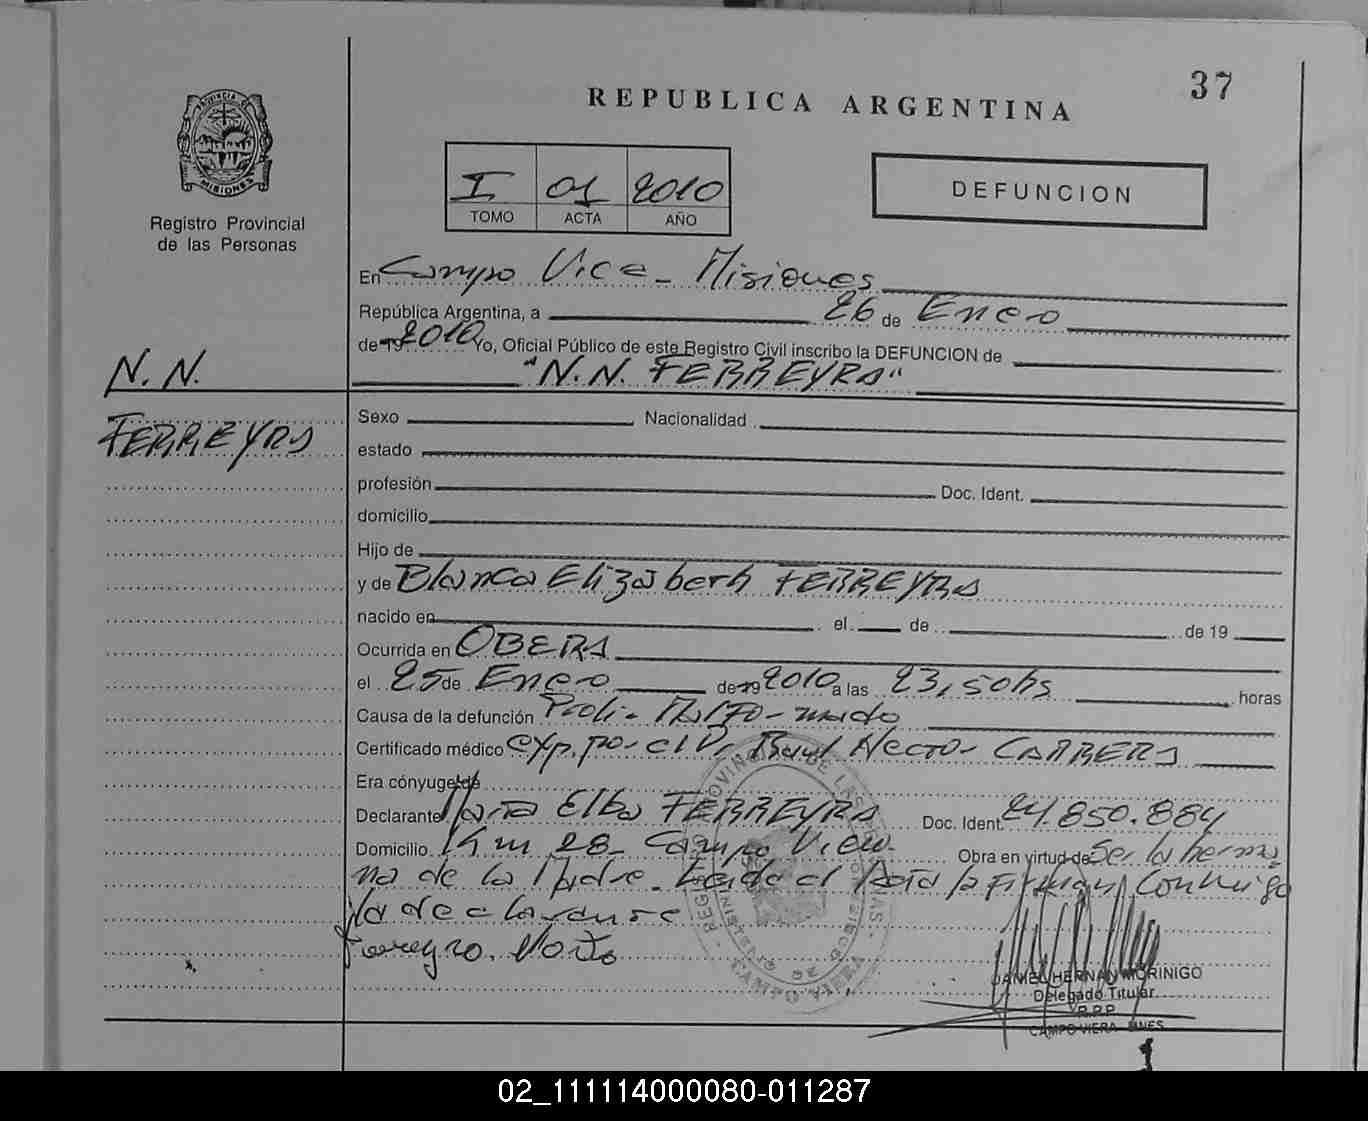 37
REPUBLICA ARGENTINA
PROVINCIA DE
MISIONES
Registro Provincial
de las Personas
I 01 2010
TOMO ACTA AÑO
DEFUNCION
En Campo Viera - Misiones
República Argentina, a 26 de Enero
de 19 2010 Yo, Oficial Público de este Registro Civil inscribo la DEFUNCION de
"N.N. FERREYRA"
N.N.
FERREYRA
Sexo Nacionalidad
estado
profesión Doc. Ident.
domicilio
Hijo de
y de Blanca Elizabeth FERREYRA
nacido en el de de 19
Ocurrida en OBERA
el 25 de Enero de 19 2010 a las 23,50hs horas
Causa de la defunción
Certificado médico exp. por el Dr. Raul Hector CABRERA
Era cónyuge de
Declarante Maria Elba FERREYRA Doc. Ident. 24.850.884
Domicilio Km 28 - Campo Viera Obra en virtud de Ser la herma
na de la Madre. Leida el Acta la Firman Conmigo
la declarante
Ferreyra Maria
DANIEL HERNAN MORINIGO
Delegado Titular
R.P.P.
CAMPO VIERA MNES
CAMPO VIERA
1
02_111114000080-011287